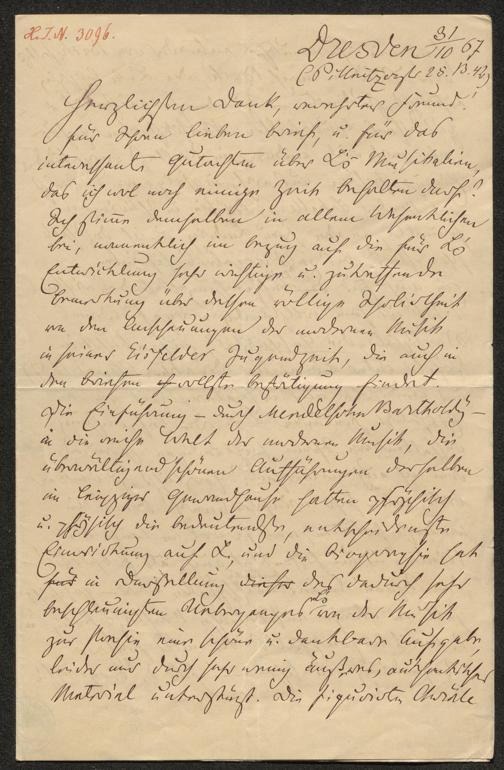 H.I.N. 3096.
Dresden 31/10 67
Herzlichsten Dank, verehrter Freund!
für Ihren lieben Brief, u. für das
interessante Gutachten über L's Musikalien,
das ich wol noch einige Zeit behalten darf?
Ich stimme demselben in allem Wesentlichen
bei, namentlich im bezug auf die für L's
Entwicklung sehr wichtige u. zutreffende
Bemerkung über dessen völlige Isolirtheit
von den Anschauungen der modernen Musik
in seiner Eisfelder Jugendzeit, die auch in
den Briefen vollste bestätigung findet.
Die Einführung – durch Mendelsohn Bartholdy –
in die reiche Welt der modernen Musik, die
überwältigend schönen Aufführungen derselben
im Leipziger Gewandhause hatten psychisch
u. physisch die bedeutendste, entscheidenste
Einwirkung auf L., und die Biographie hat
in Darstellung des dadurch sehr
beschleunigten Ueberganges L's von der Musik
zur Poesie eine schöne u. dankbare Aufgabe,
leider nur durch sehr wenig äusseres, authentisches
Material unterstützt. Die figurirten Choräle